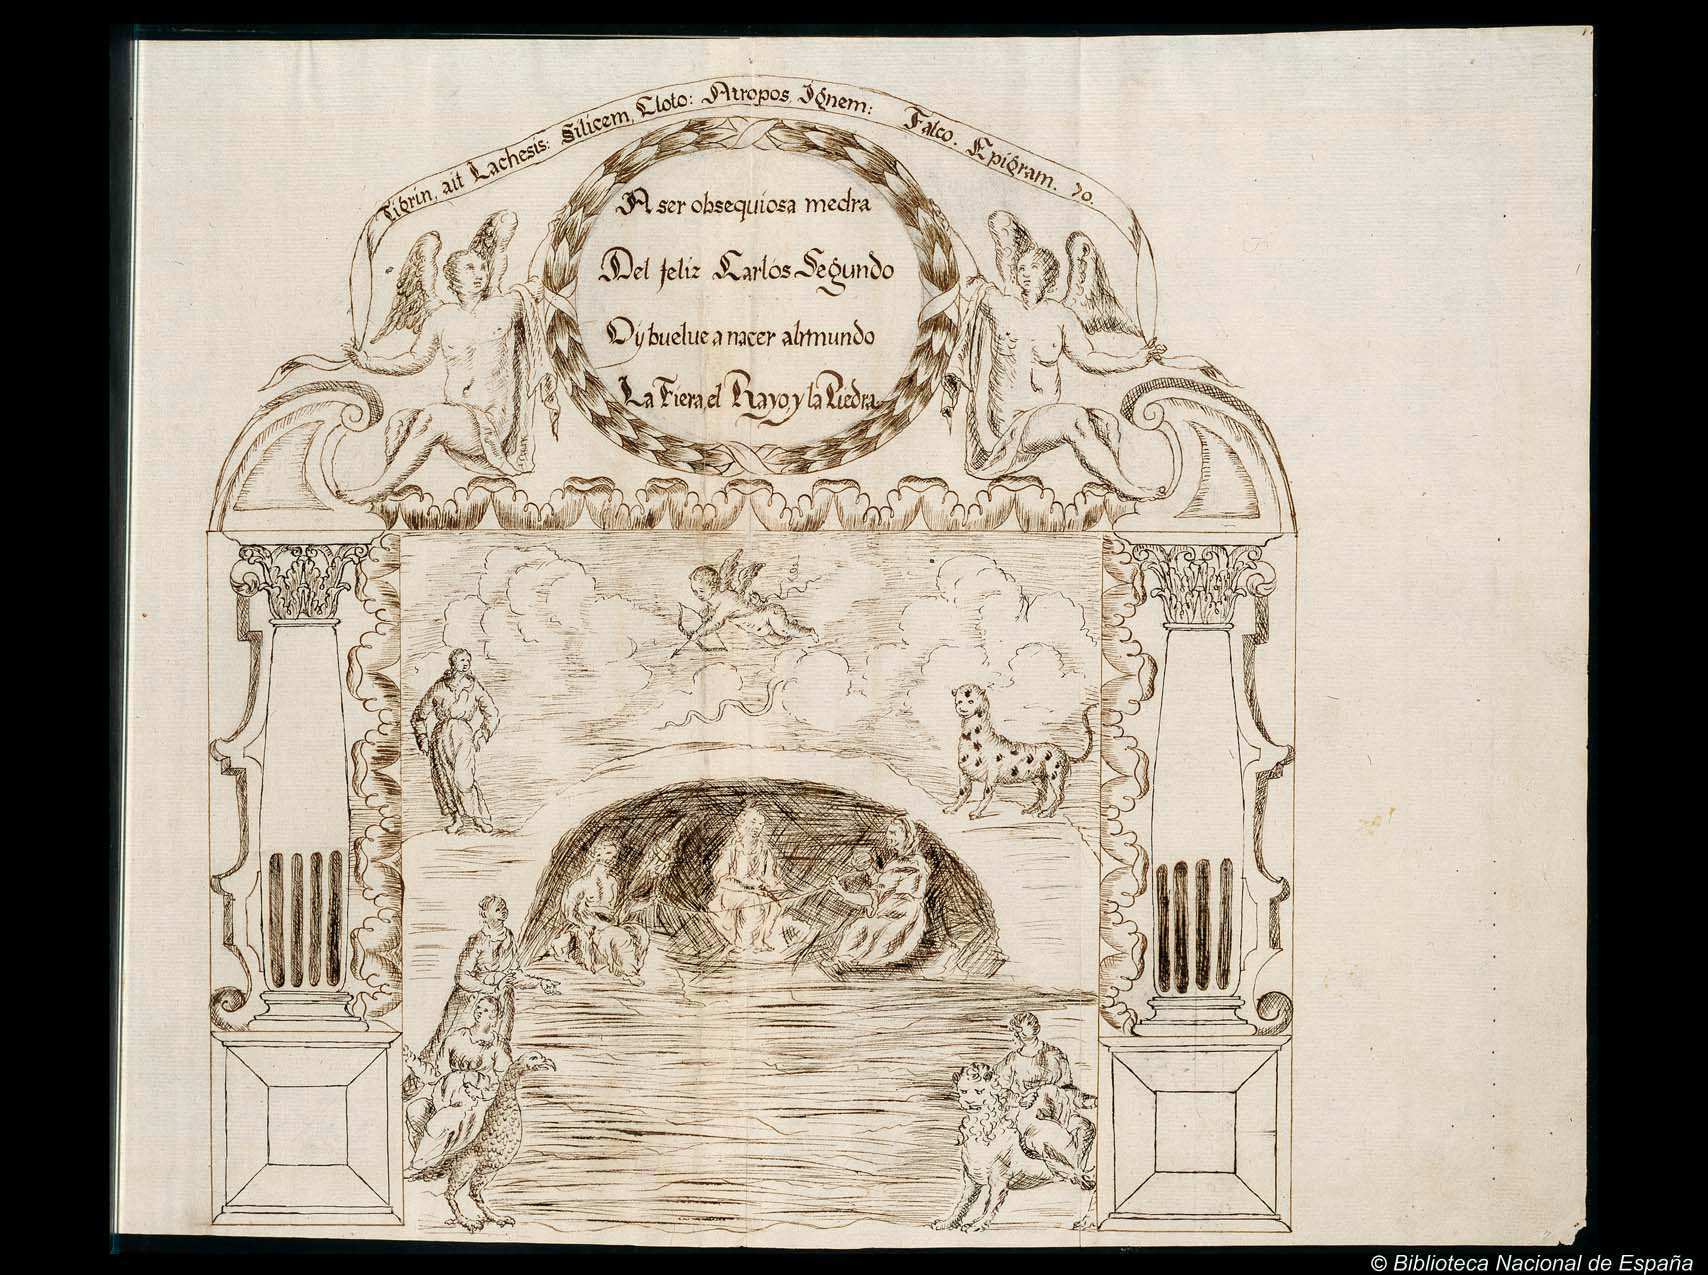 Tigrin, ait Lachesis: Silicem, Cloto: Atropos, Ignem: Falco. Epigram. 70.
A ser obsequiosa medra
Del feliz Carlos Segundo
Oy buelue a nacer al mundo
La Fiera, el Rayo, y la Piedra
© Biblioteca Nacional de España